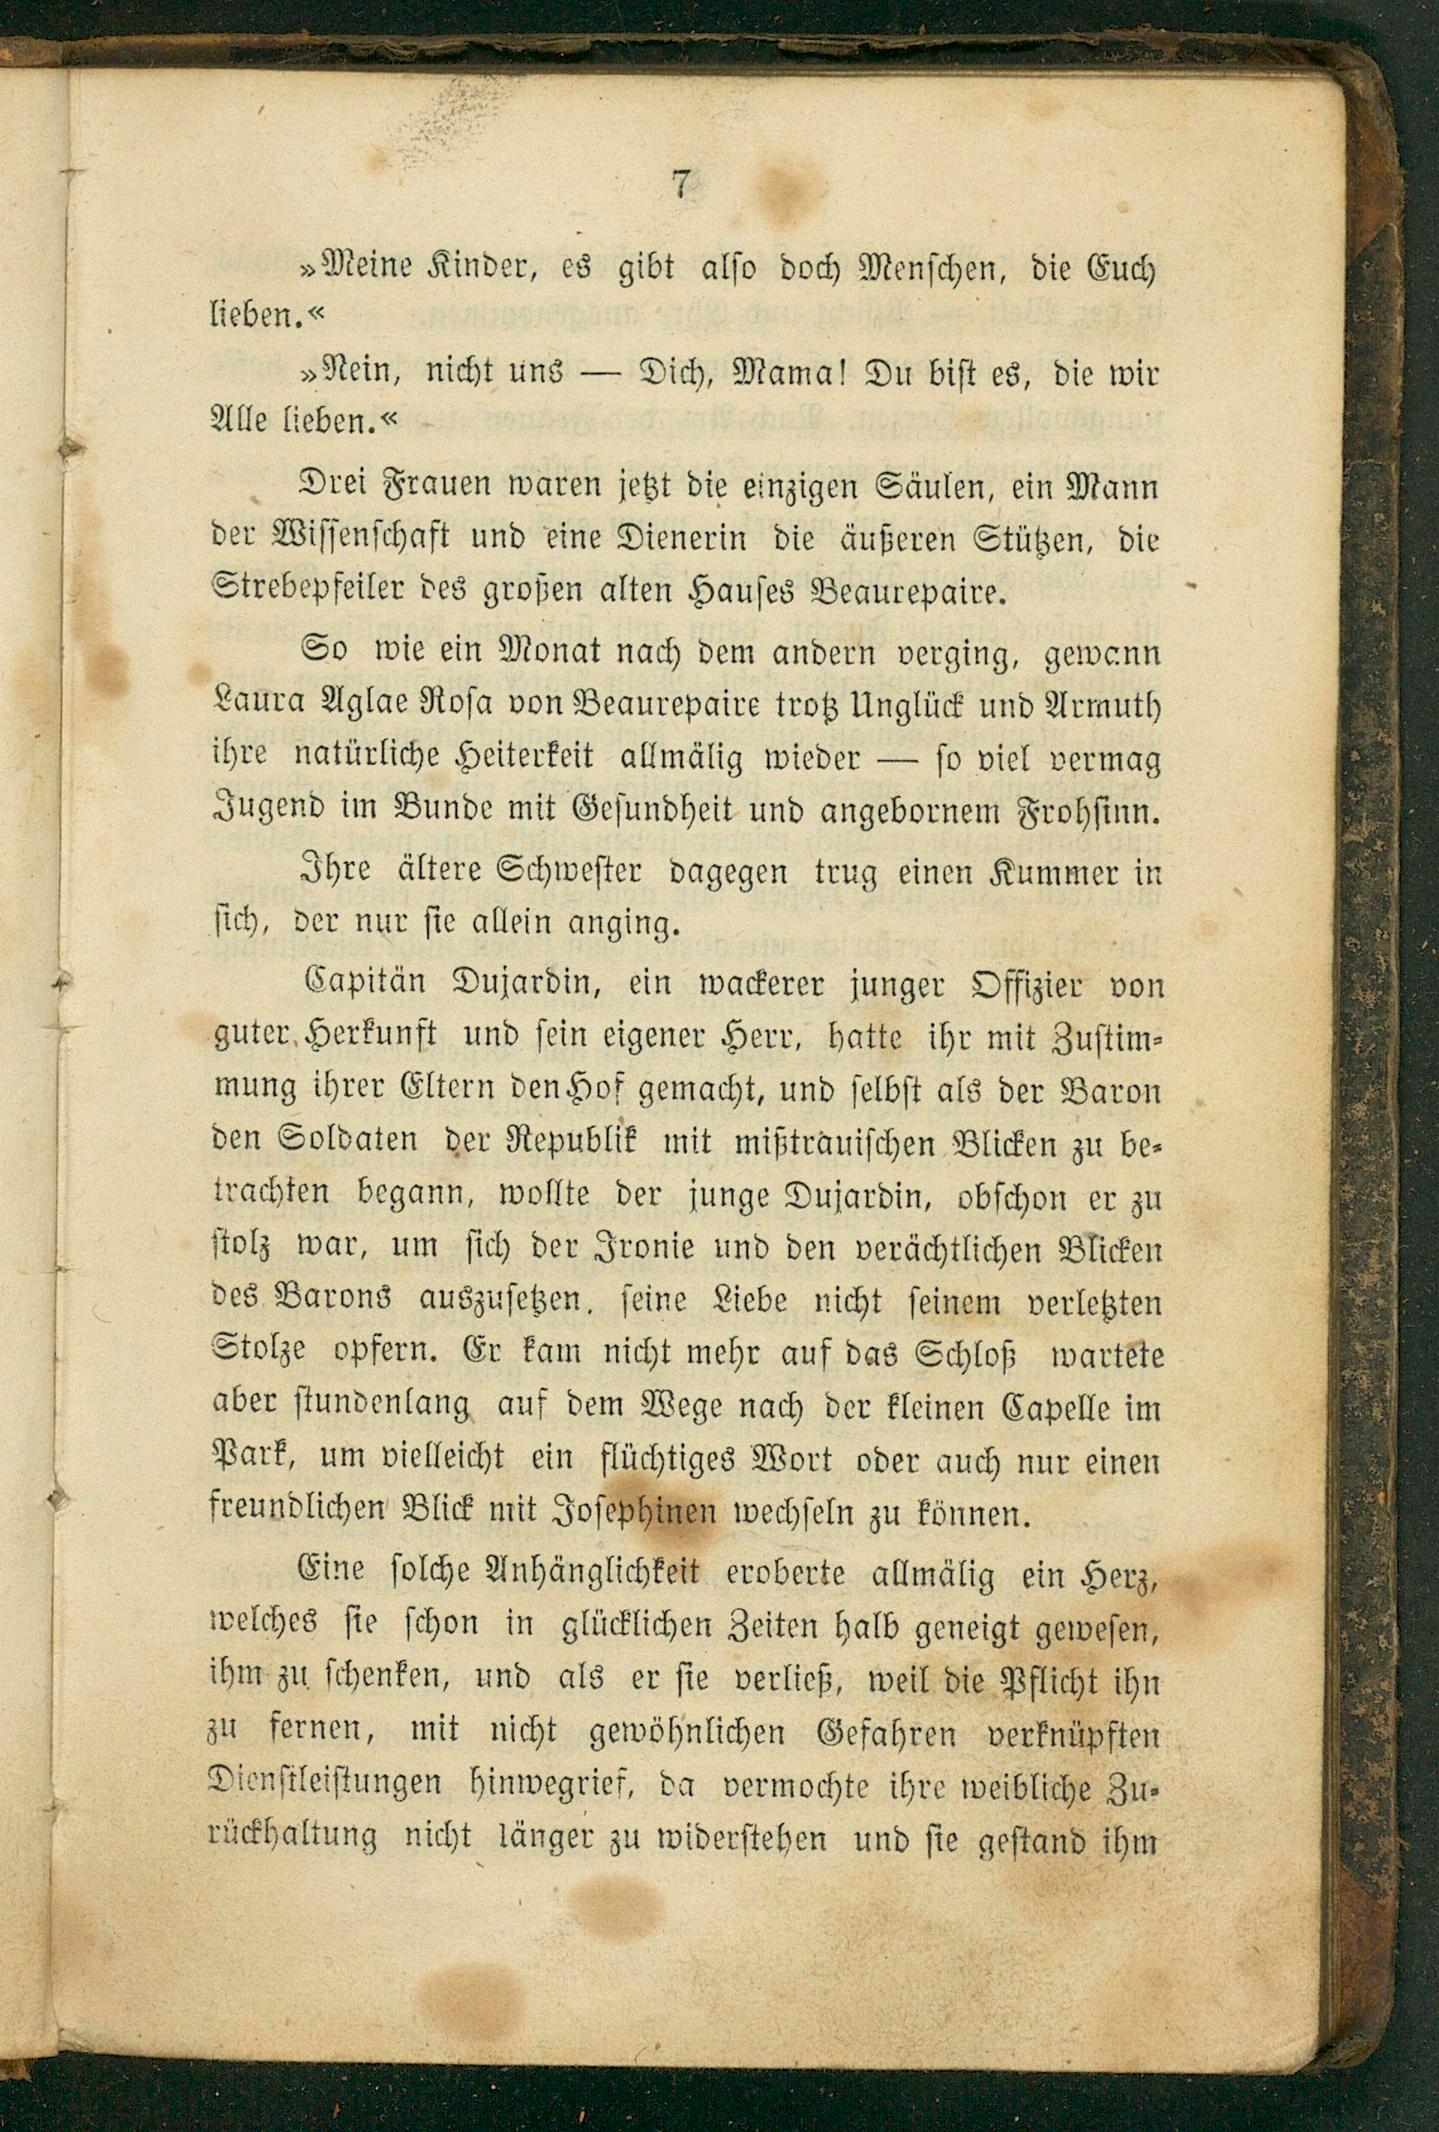 7
»Meine Kinder, es gibt also doch Menschen, die Euch
lieben.«
»Nein, nicht uns — Dich, Mama! Du bist es, die wir
Alle lieben.«
Drei Frauen waren jetzt die einzigen Säulen, ein Mann
der Wissenschaft und eine Dienerin die äußeren Stützen, die
Strebepfeiler des großen alten Hauses Beaurepaire.
So wie ein Monat nach dem andern verging, gewann
Laura Aglae Rosa von Beaurepaire trotz Unglück und Armuth
ihre natürliche Heiterkeit allmälig wieder — so viel vermag
Jugend im Bunde mit Gesundheit und angebornem Frohsinn.
Ihre ältere Schwester dagegen trug einen Kummer in
sich, der nur sie allein anging.
Capitän Dujardin, ein wackerer junger Offizier von
guter Herkunft und sein eigener Herr, hatte ihr mit Zustim-
mung ihrer Eltern den Hof gemacht, und selbst als der Baron
den Soldaten der Republik mit mißtrauischen Blicken zu be-
trachten begann, wollte der junge Dujardin, obschon er zu
stolz war, um sich der Ironie und den verächtlichen Blicken
des Barons auszusetzen, seine Liebe nicht seinem verletzten
Stolze opfern. Er kam nicht mehr auf das Schloß wartete
aber stundenlang auf dem Wege nach der kleinen Capelle im
Park, um vielleicht ein flüchtiges Wort oder auch nur einen
freundlichen Blick mit Josephinen wechseln zu können.
Eine solche Anhänglichkeit eroberte allmälig ein Herz,
welches sie schon in glücklichen Zeiten halb geneigt gewesen,
ihm zu schenken, und als er sie verließ, weil die Pflicht ihn
zu fernen, mit nicht gewöhnlichen Gefahren verknüpften
Dienstleistungen hinwegrief, da vermochte ihre weibliche Zu-
rückhaltung nicht länger zu widerstehen und sie gestand ihm